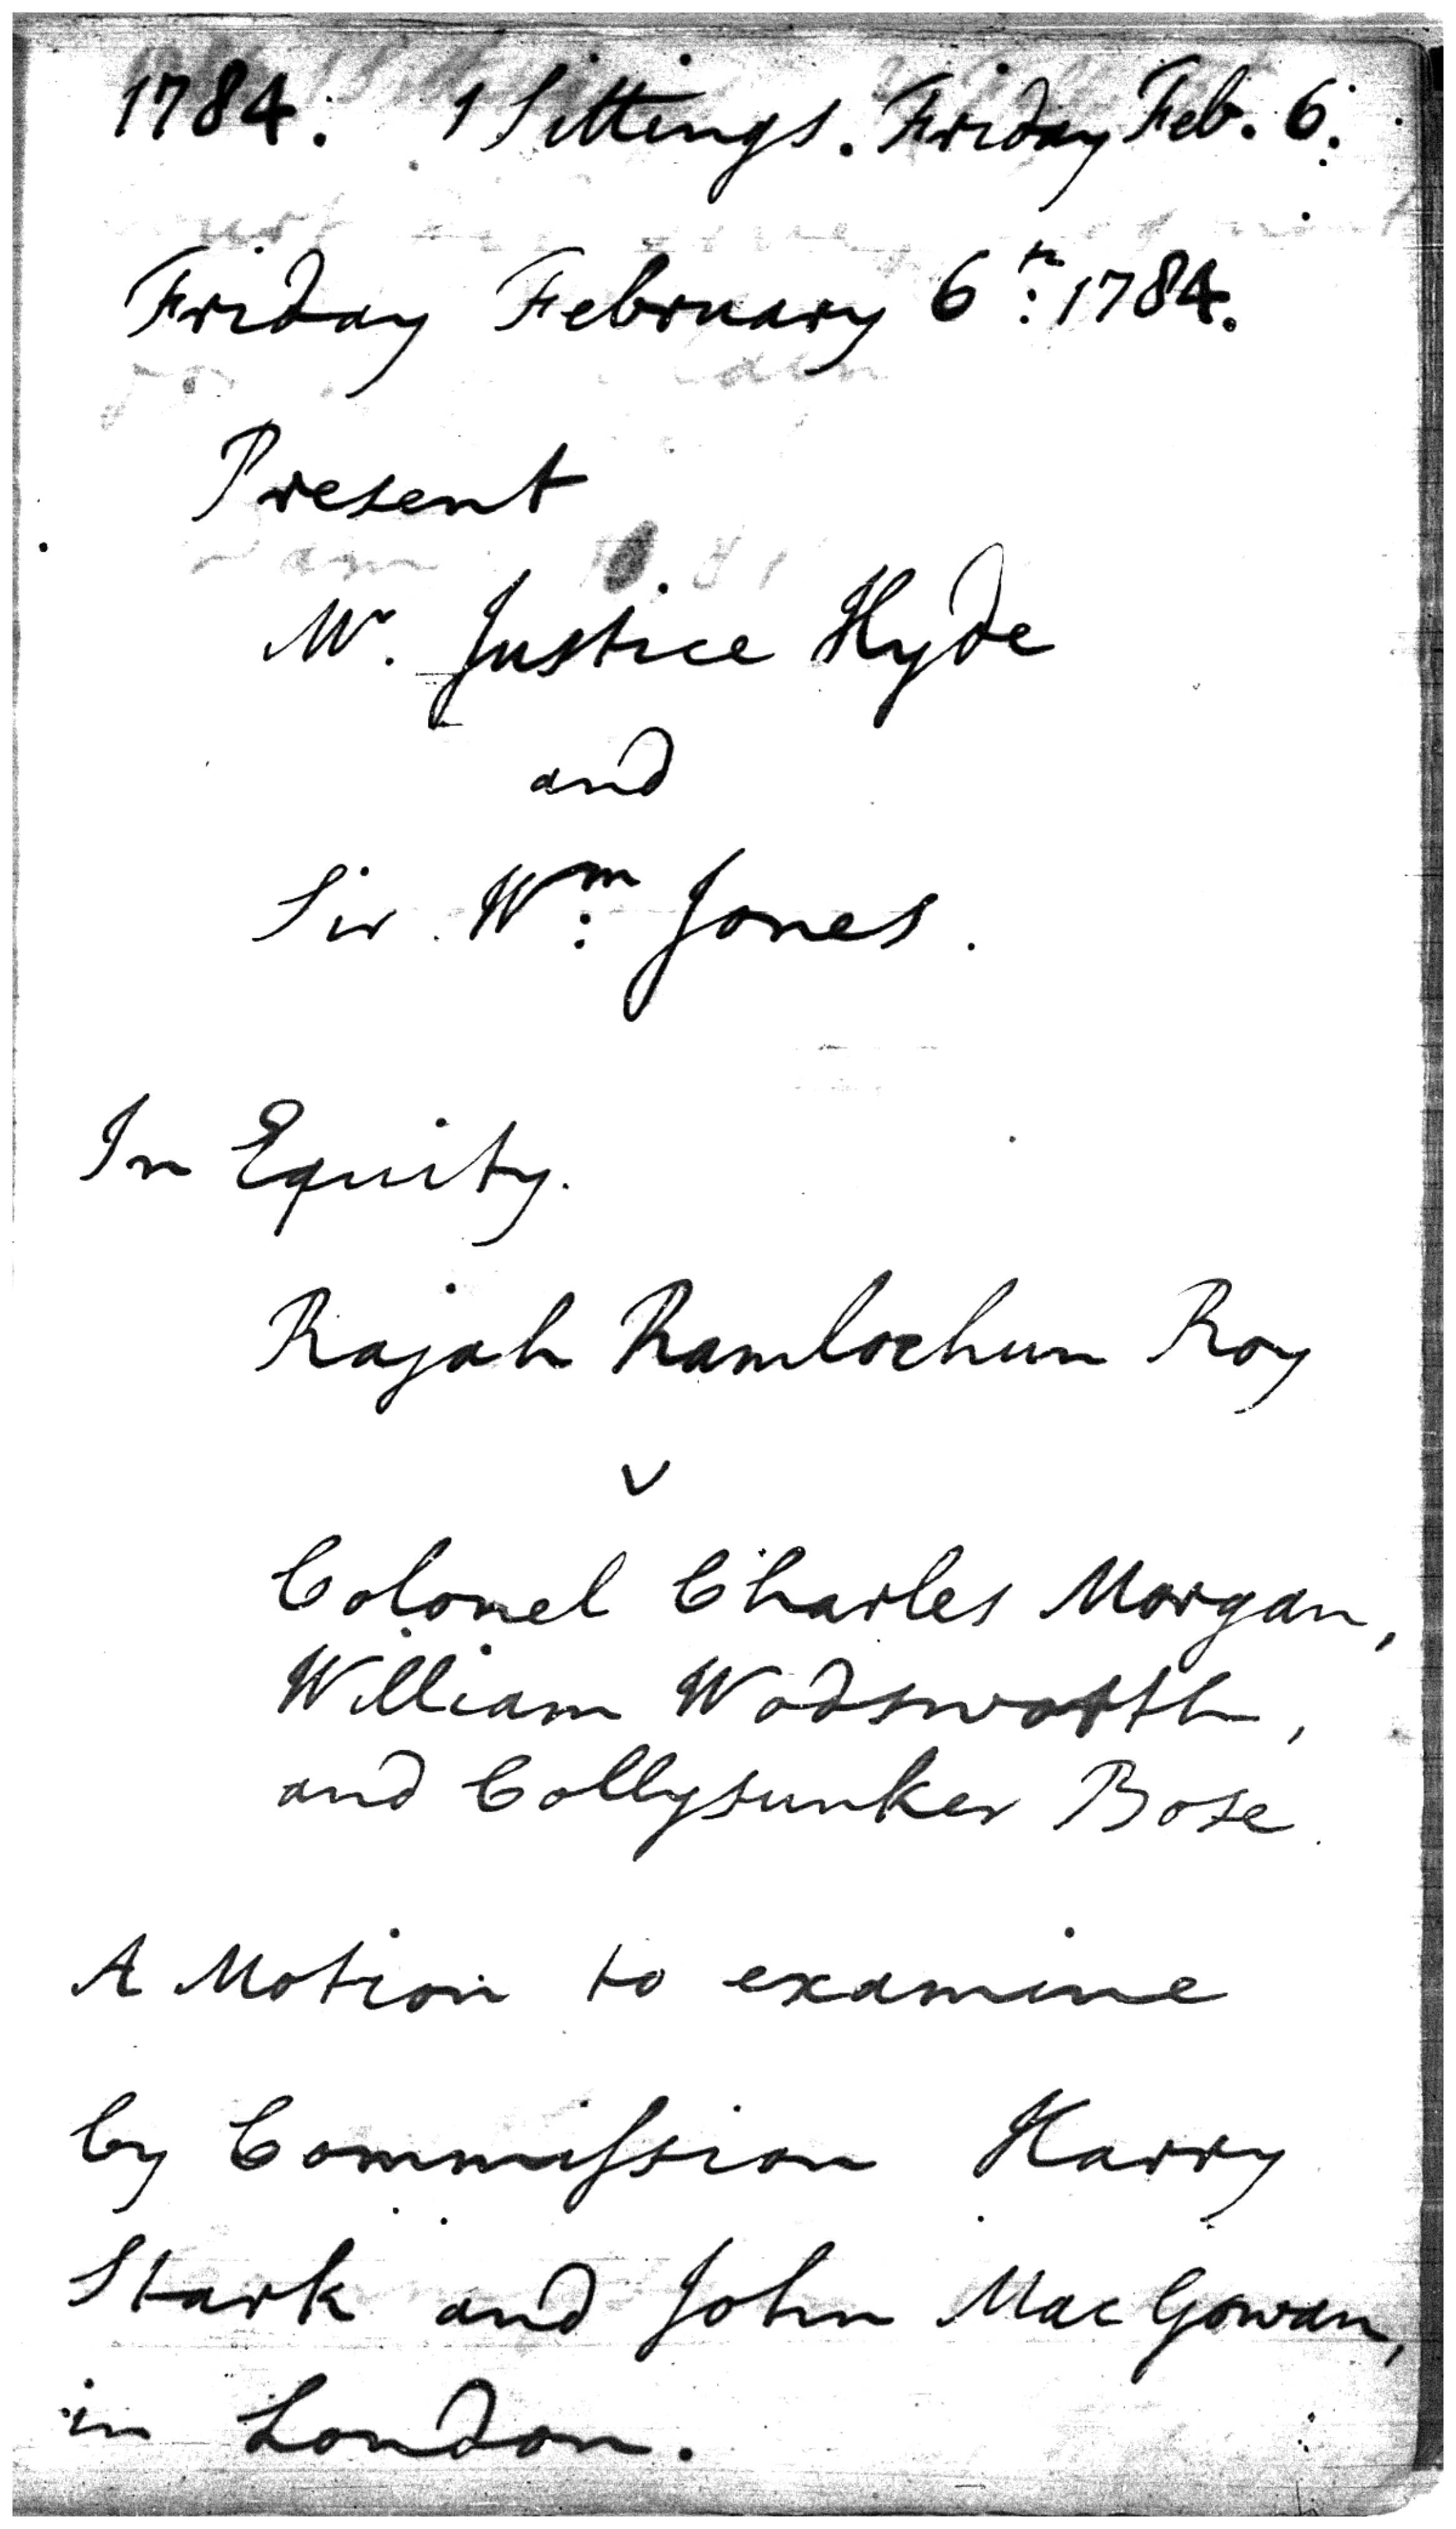 1784. 1 Sittings. Friday Feb. 6.
Friday February 6th: 1784.
Present
Mr. Justice Hyde
and
Sir Wm: Jones.
In Equity.
Rajah Ramlochun Roy
v
Colonel Charles Morgan,
William Wodsworth,
and Collysunker Bose.
A Motion to examine
by Commission Harry
Stark and John Mac Gowan,
in London.